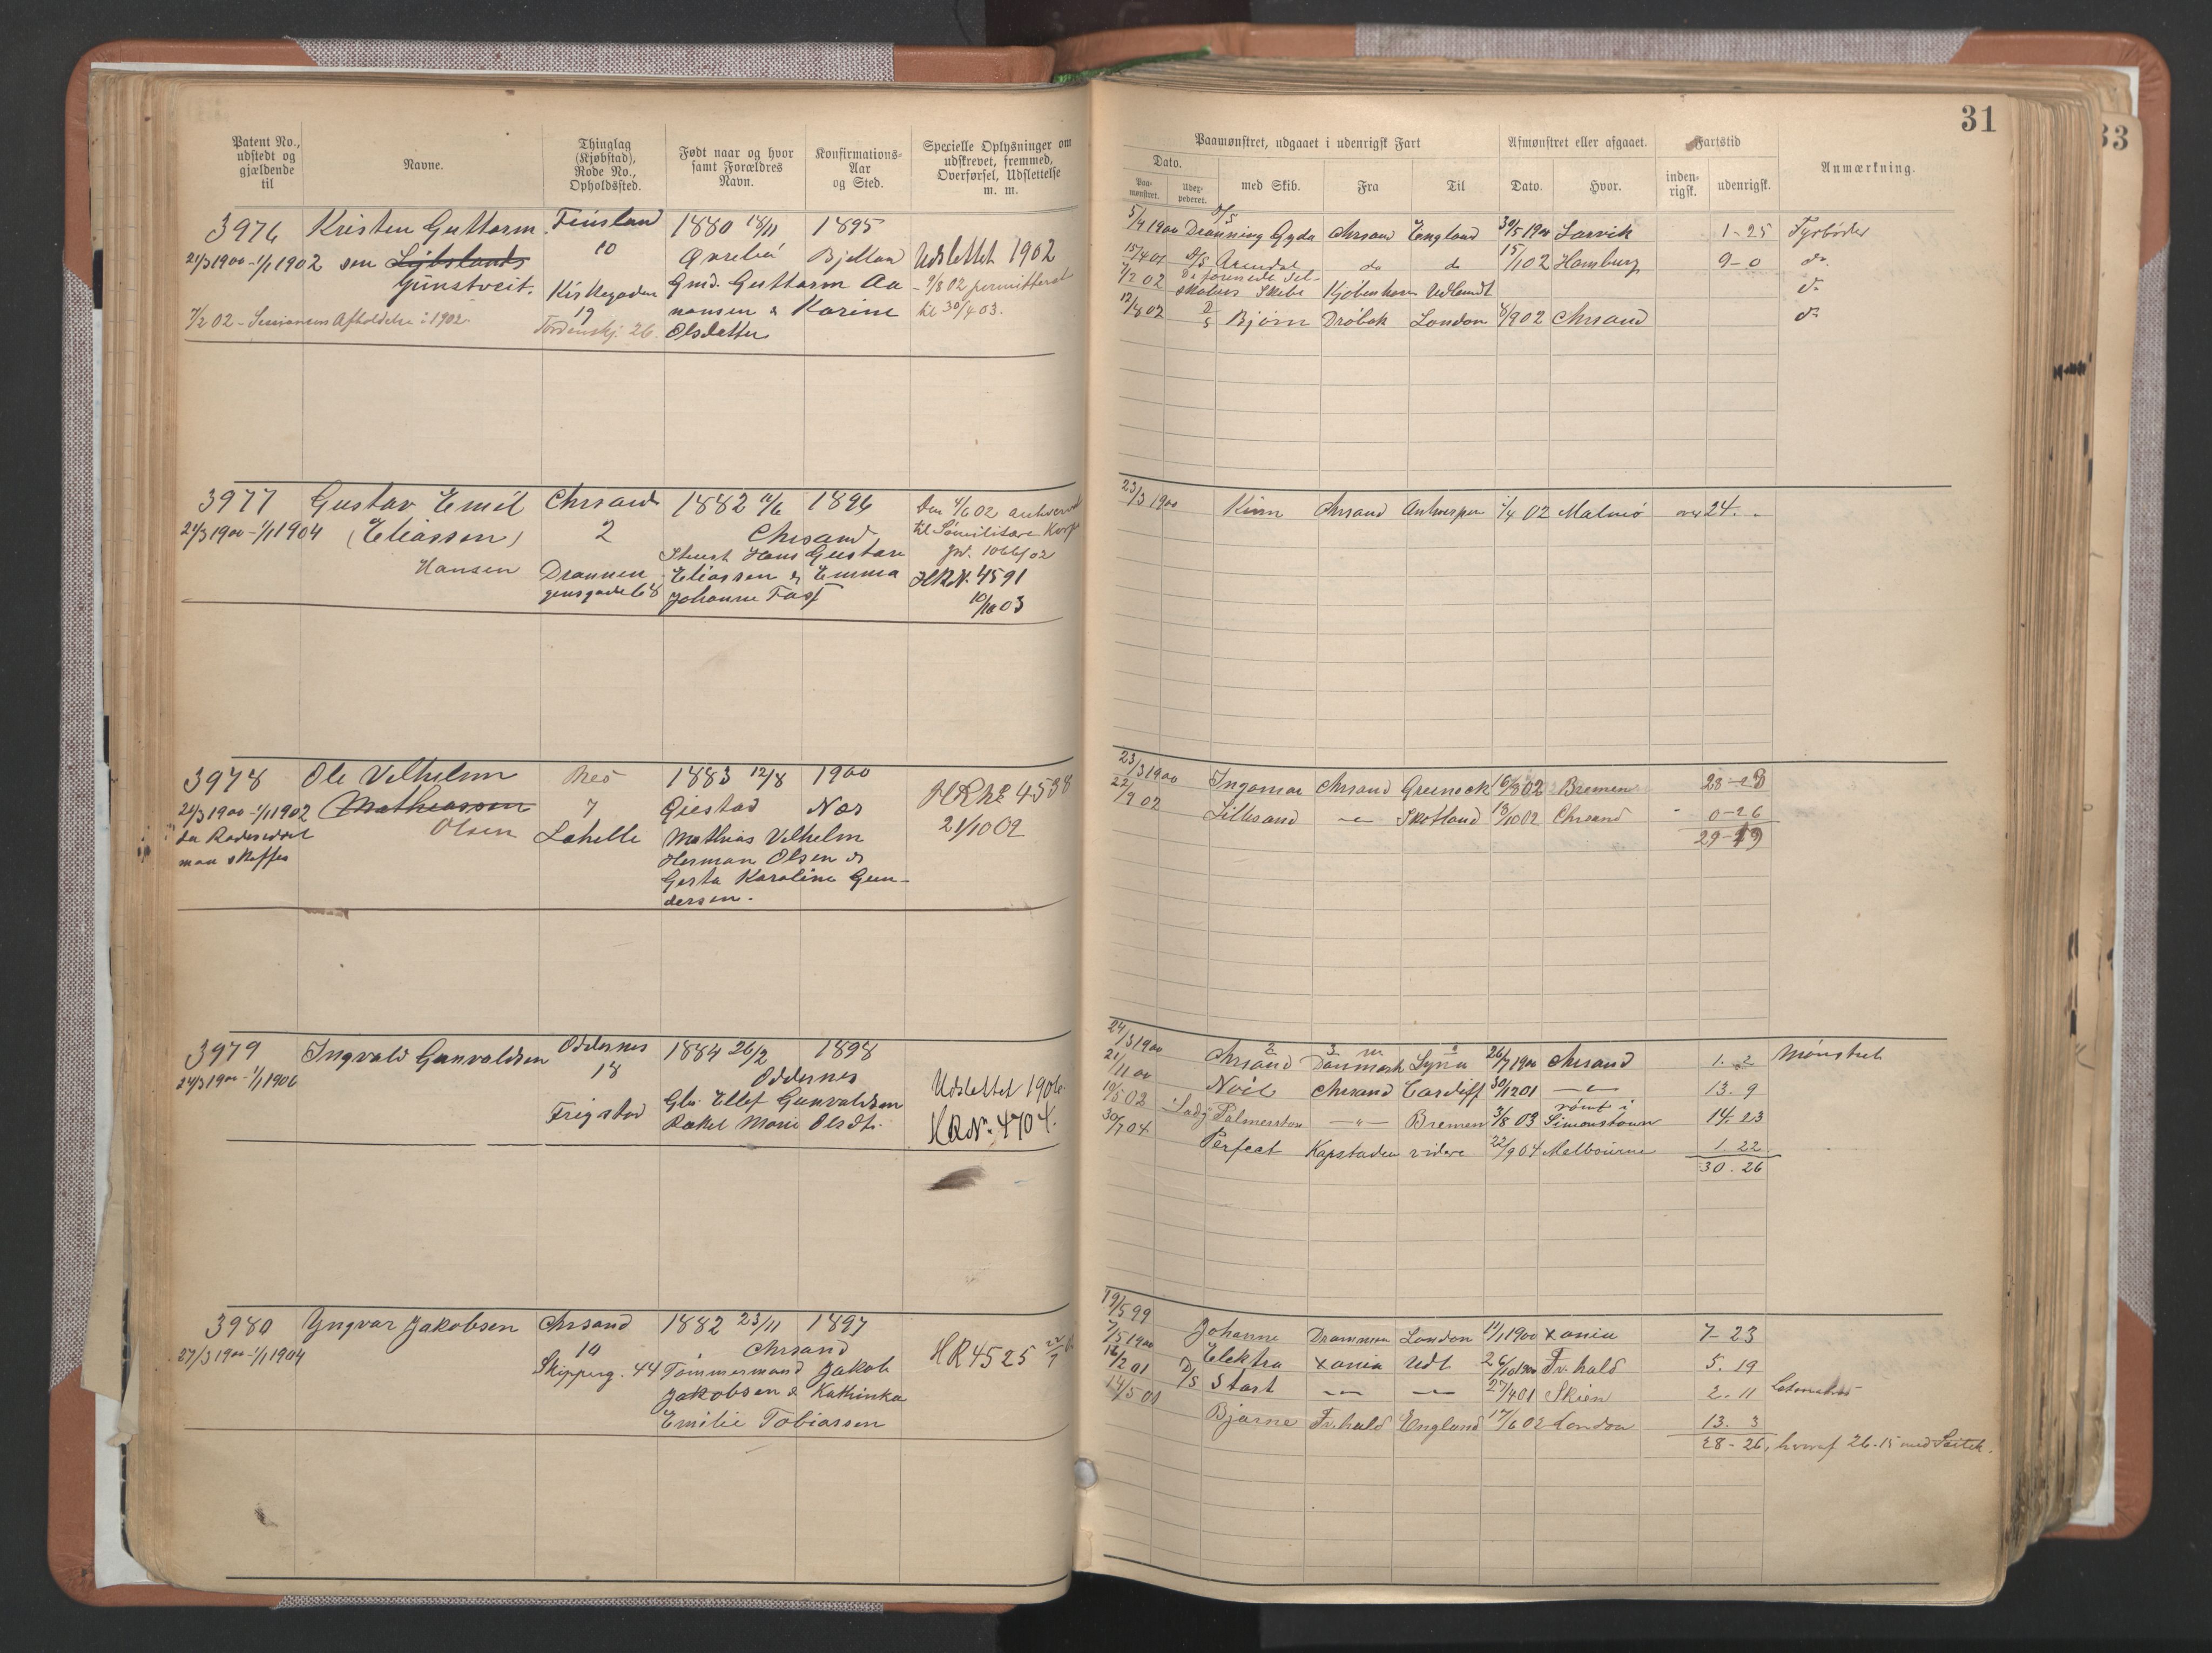 31
33
Patent No., udstedt og gjældende til
Navne.
Thinglag (Kjøbstad), Rode No., Opholdssted.
Født naar og hvor samt Forældres Navn.
Konfirmations-Aar og Sted.
Specielle Oplysninger om udskrevet, fremmed, Overførsel, Udslettelse m. m.
Paamønstret, udgaaet i udenrigsk Fart
Dato.
Paa-mønstret.
med Skib.
Fra
Til
Afmønstret eller afgaaet.
Dato.
Hvor.
Fartstid
inden-rigsk.
udenrigsk.
Anmærkning.
3976 Kristen Guttorm Finsland 1880 18/11 1895
21/3 1900 - 1/1 1902 sen Lybslands 10 Bjelland Udslettet 1902
Gunstveit. Kirkegaden Gmd. Guttorm Aa
19 nonsen & Karine til 30/4 03.
7/2 02 - Sessionens Afholdelse i 1902. Tordenskj. 26 Olsdatter
5/4 1900 D/S Dronning Gyda Chrsand England 30/5 1900 Larvik 1-25 Fyrbøder
15/4 01 D/S Arendal do do 15/1 02 Hamburg 9-0 do
7/2 02 Skabets Skibe Kjøbenhavn Udlandt do
12/8 02 D/S Bjørn Drøbak London 8/9 02 Chrsand do
3977 Gustav Emil Chrsand 1882 1896
21/3 1900 - 1/1 1904 (Eliassen) 2 Chrsand til Sømilitære Korps
Hansen Hans Gustav 1066/02
Dronnin Eliassen & Emma HRN. 4591
gensgade 68 Johanne 10/10 03
23/3 1900 Kinn Chrsand Antwerpen 1/4 02 Malmø over 24. -
3978 Ole Vilhelm Nes 1883 12/8 1900 HR No 4538
21/3 1900 - 1/1 1902 Mathiassen 7 Qiestad Nes 21/10 02
Olsen Lahelle Mathias Vilhelm
man skaffes Herman Olsen &
Gerta Karoline Gun-
dersen.
23/3 1900 Ingomar Chrsand Greenock 16/8 02 Bremen 28-23
22/9 02 Lillesand -"- Skotland 18/10 02 Chrsand 0-26
29-19
3979 Ingvald Gunvaldsen Oddernes 1884 26/2 1898
24/3 1900 - 1/1 1906 18 Oddernes Udslettet 1906.
Frigstad Ellef Gunvaldsen
Rakel Marie Olsdt. HRN. 4704.
24/3 1900 Chrsand Danmark 26/7 1900 Chrsand 1. 2 Mønstret
21/11 00 Noël Chrsand Cardiff 30/12 01 -"- 13. 9
10/5 02 Lady Palmerston -"- Bremen 3/8 03 rømt i Simonstown 14. 23
30/7 04 Perfect Kapstaden videre 22/9 04 Melbourne 1. 22
30. 26
3980 Yngvar Jakobsen Chrsand 1882 23/11 1897
27/3 1900 - 1/1 1904 10 Chrsand HR 4525
Skipperg. 44 Tømmermand Jakob
Jakobsen & Kathinka
Emilie Tobiassen
19/5 99 Johanne Drammen London 11/1 1900 Xania 7-23
7/5 1900 Elektra Xania Udl 26/10 1900 Fr.hald 5. 19
16/2 01 D/S Start -"- -"- 27/4 01 Skien 2. 11
14/5 01 Bjarne Fr.hald England 17/6 02 London 13. 3
28-26, hvoraf 26-15 med Seilsk.